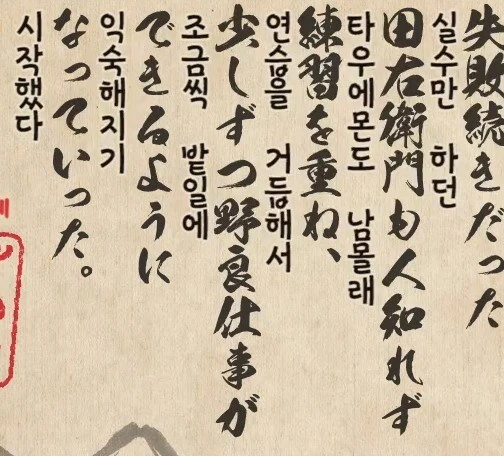 失敗続きだった
실수만 하던
田右衛門も人知れず
타우에몬도 남몰래
練習を重ね、
연습을 거듭해서
少しずつ野良仕事が
조금씩 밭일에
できるように
익숙해지기
なっていった。
시작했다